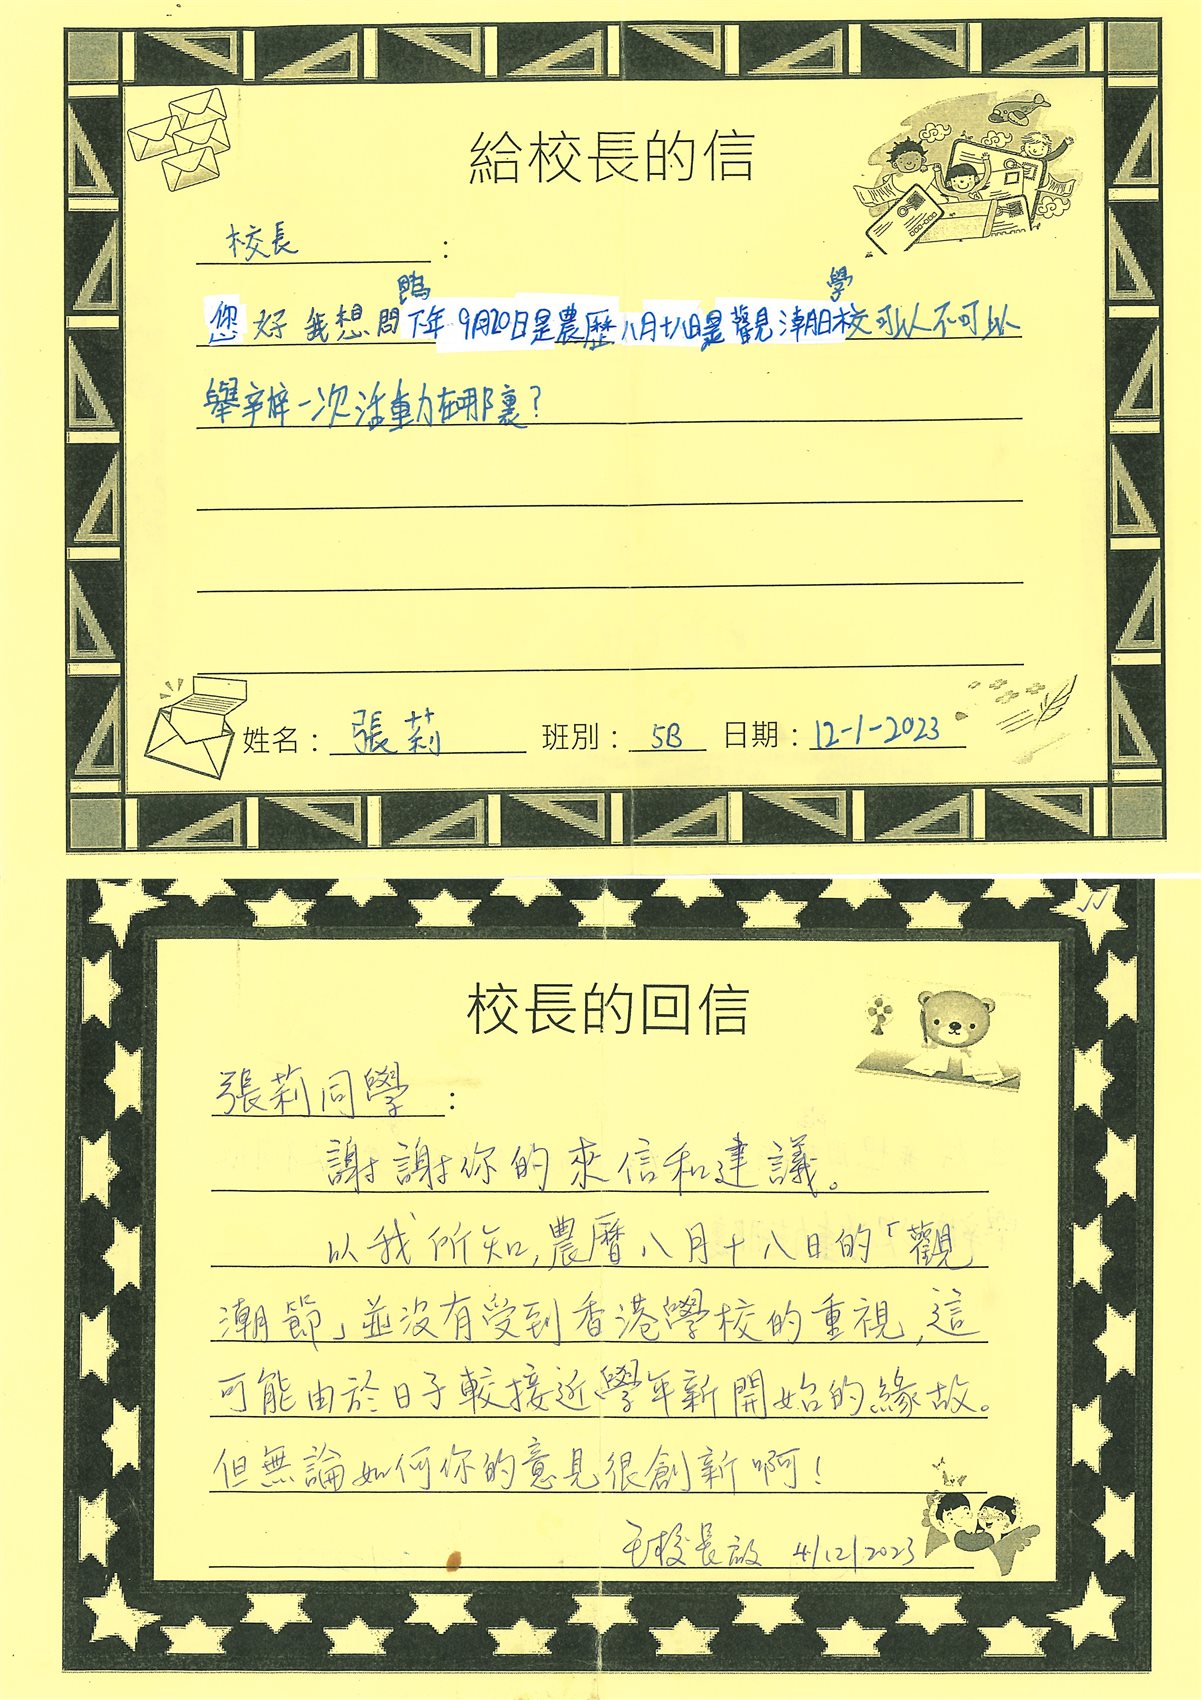 給校長的信
校長：
您好我想問下年9月20日是農歷八月十八日是觀潮日學校可以不可以
舉辦一次活動在哪裏？
姓名：張莉 班別：5B 日期：12-1-2023
校長的回信
張莉同學：
謝謝你的來信和建議。
以我所知，農曆八月十八日的「觀
潮節」並沒有受到香港學校的重視，這
可能由於日子較接近學年新開始的緣故。
但無論如何你的意見很創新啊！
校長啟 4/12/2023